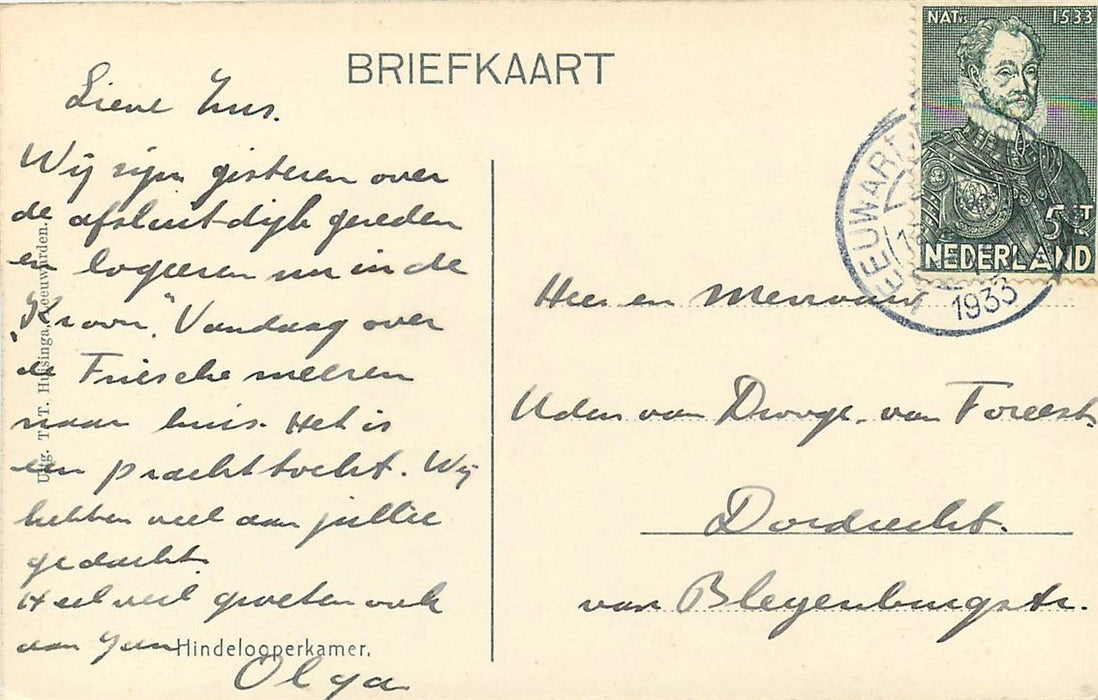 BRIEFKAART
Lieve Zus.
Wij zijn gisteren over
de afsluitdijk gereden
en logeeren nu in de
"Kroon". Vandaag over
de Friesche meeren
naar huis. Het is
een prachttocht. Wij
hebben veel aan jullie
gedacht.
Heel veel groeten ook
aan
Olga
Hindelooperkamer.
Uitg. T. T. Huisinga, Leeuwarden.
NAT. 1533
5 CT
NEDERLAND
LEEUWARDEN
1933
Heer en Mevrouw
Uden van Droogе. van Foreest.
Dordrecht.
van Bleyenburgstr.